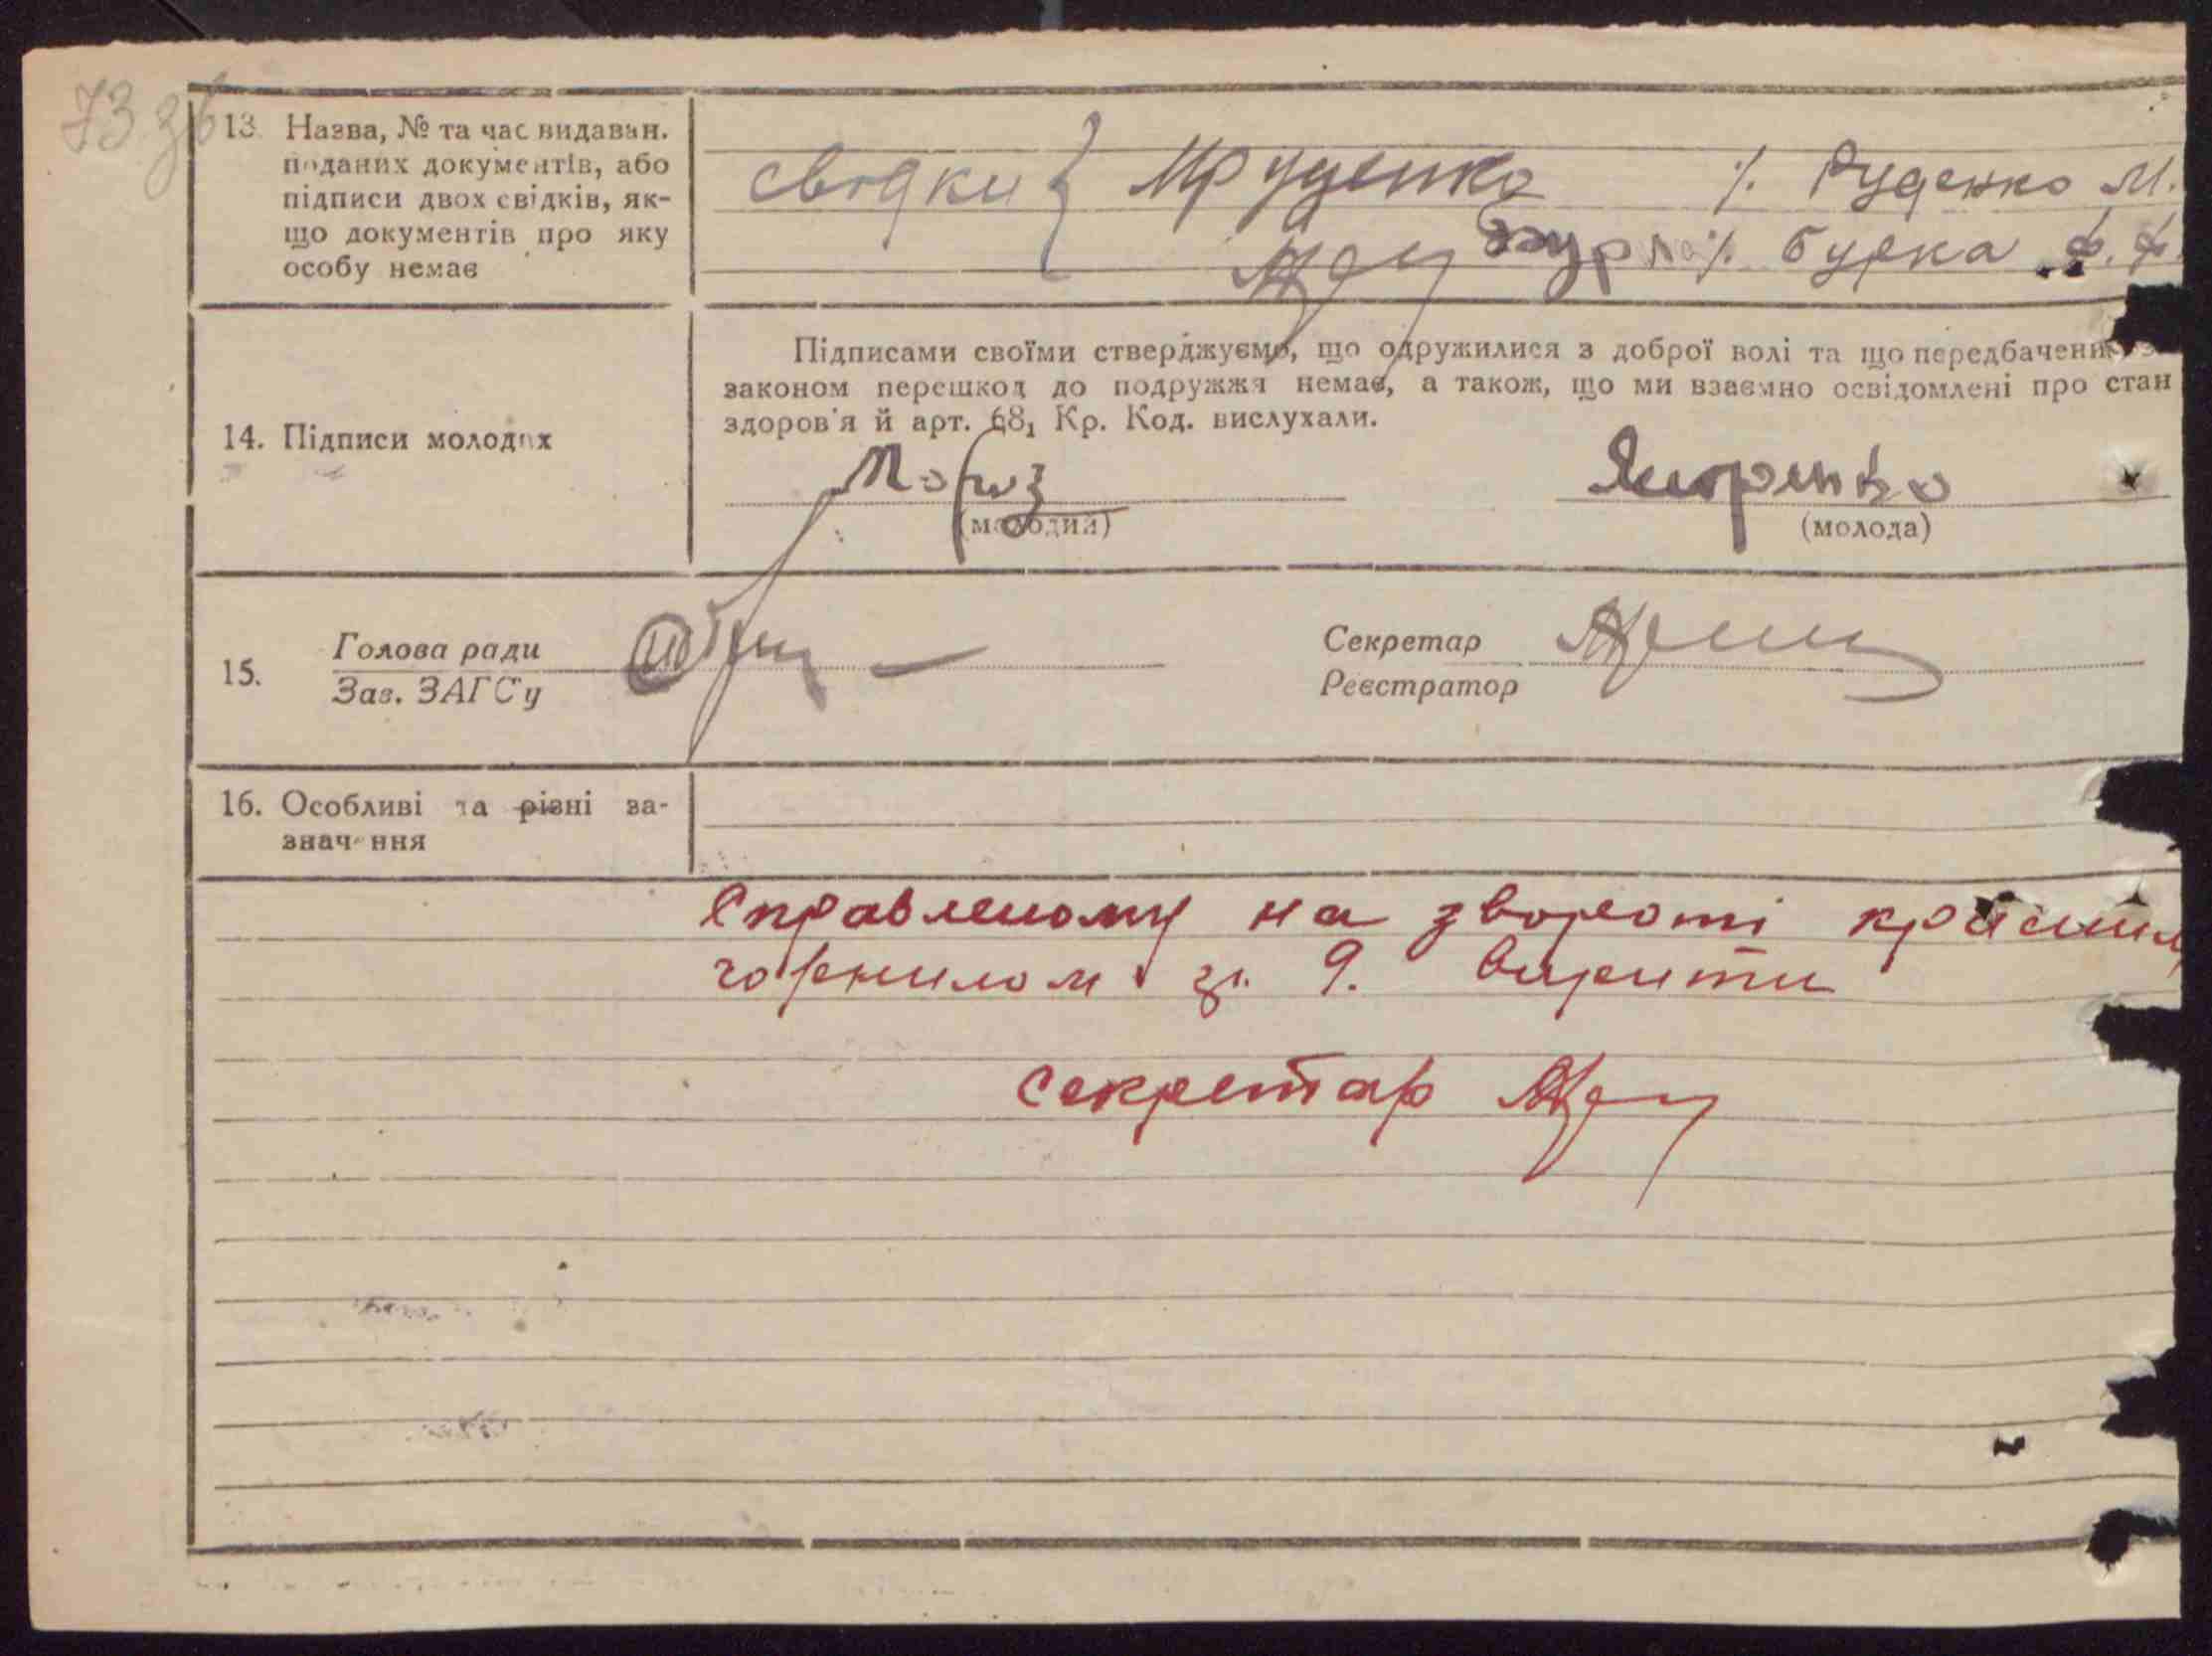 73 зв
13. Назва, № та час видаван.
поданих документів, або
підписи двох свідків, як-
що документів про яку
особу немає
свідки } МРуденко /. Руденко М.
Бурка /. Бурка Ф. Ф.
14. Підписи молодих
Підписами своїми стверджуємо, що одружилися з доброї волі та що передбачених
законом перешкод до подружжя немає, а також, що ми взаємно освідомлені про стан
здоров'я й арт. 68₁ Кр. Код. вислухали.
(молодий) (молода)
15. Голова ради
Зав. ЗАГС'у
Секретар
Реєстратор
16. Особливі та різні за-
значення
Справленому на звороті красним
чорнилом гр. 9. вірити
секретар